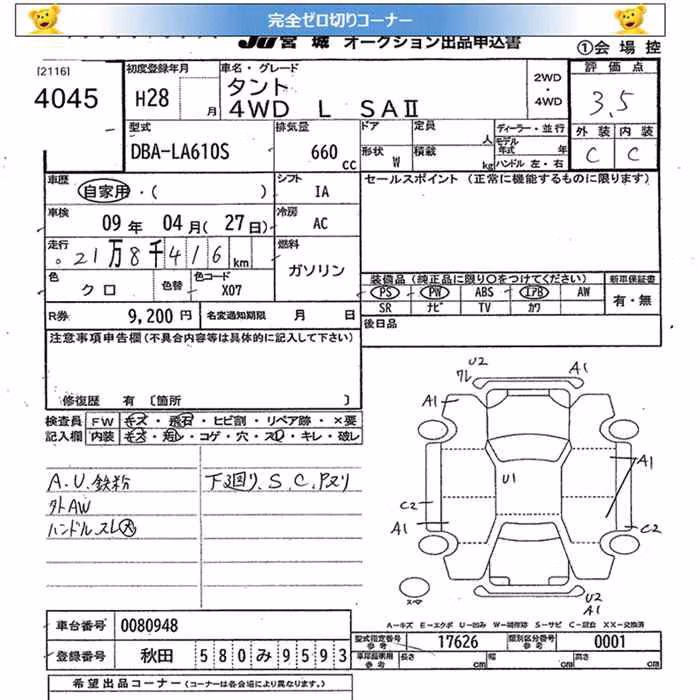 完全ゼロ切りコーナー
JU宮城 オークション出品申込書
①会場控
[2116]
4045
初度登録年月 H28 月
車名・グレード タント
4WD L SAⅡ
2WD・4WD
評価点 3.5
外装 内装
C C
型式 DBA-LA610S
排気量 660 cc
ドア 定員 人
形状 W 積載 kg
ディーラー・並行
モデル年式 年
ハンドル 左・右
車歴 自家用・( )
シフト IA
セールスポイント (正常に機能するものに限ります)
車検 09年 04月(27日)
冷房 AC
走行 21万8千416km
燃料 ガソリン
色 クロ 色替 色コード X07
装備品 (純正品に限り○をつけてください) 新車保証書
PS PW ABS エアB AW 有・無
SR ナビ TV カワ
R券 9,200円 名変通知期限 月 日
後日品
注意事項申告欄 (不具合内容等は具体的に記入して下さい)
修復歴 有 〔箇所 〕
検査員 FW キズ・飛石・ヒビ割・リペア跡・×要
記入欄 内装 キズ・汚レ・コゲ・穴・スレ・キレ・破レ
A.U.鉄粉 下廻り.S.C.Pヌリ
外AW
ハンドルスレ大
U2
ワレ A1
A1
U1 A1
C2 C2
A1
スペア
U2
A1
A－キズ E－エクボ U－凹み W－補修跡 S－サビ C－腐食 XX－交換済
車台番号 0080948
型式指定番号 参考 17626 類別区分番号 参考 0001
登録番号 秋田 580み9593
長さ cm 幅 cm 高さ cm
希望出品コーナー (コーナーは各会場により異なります。)